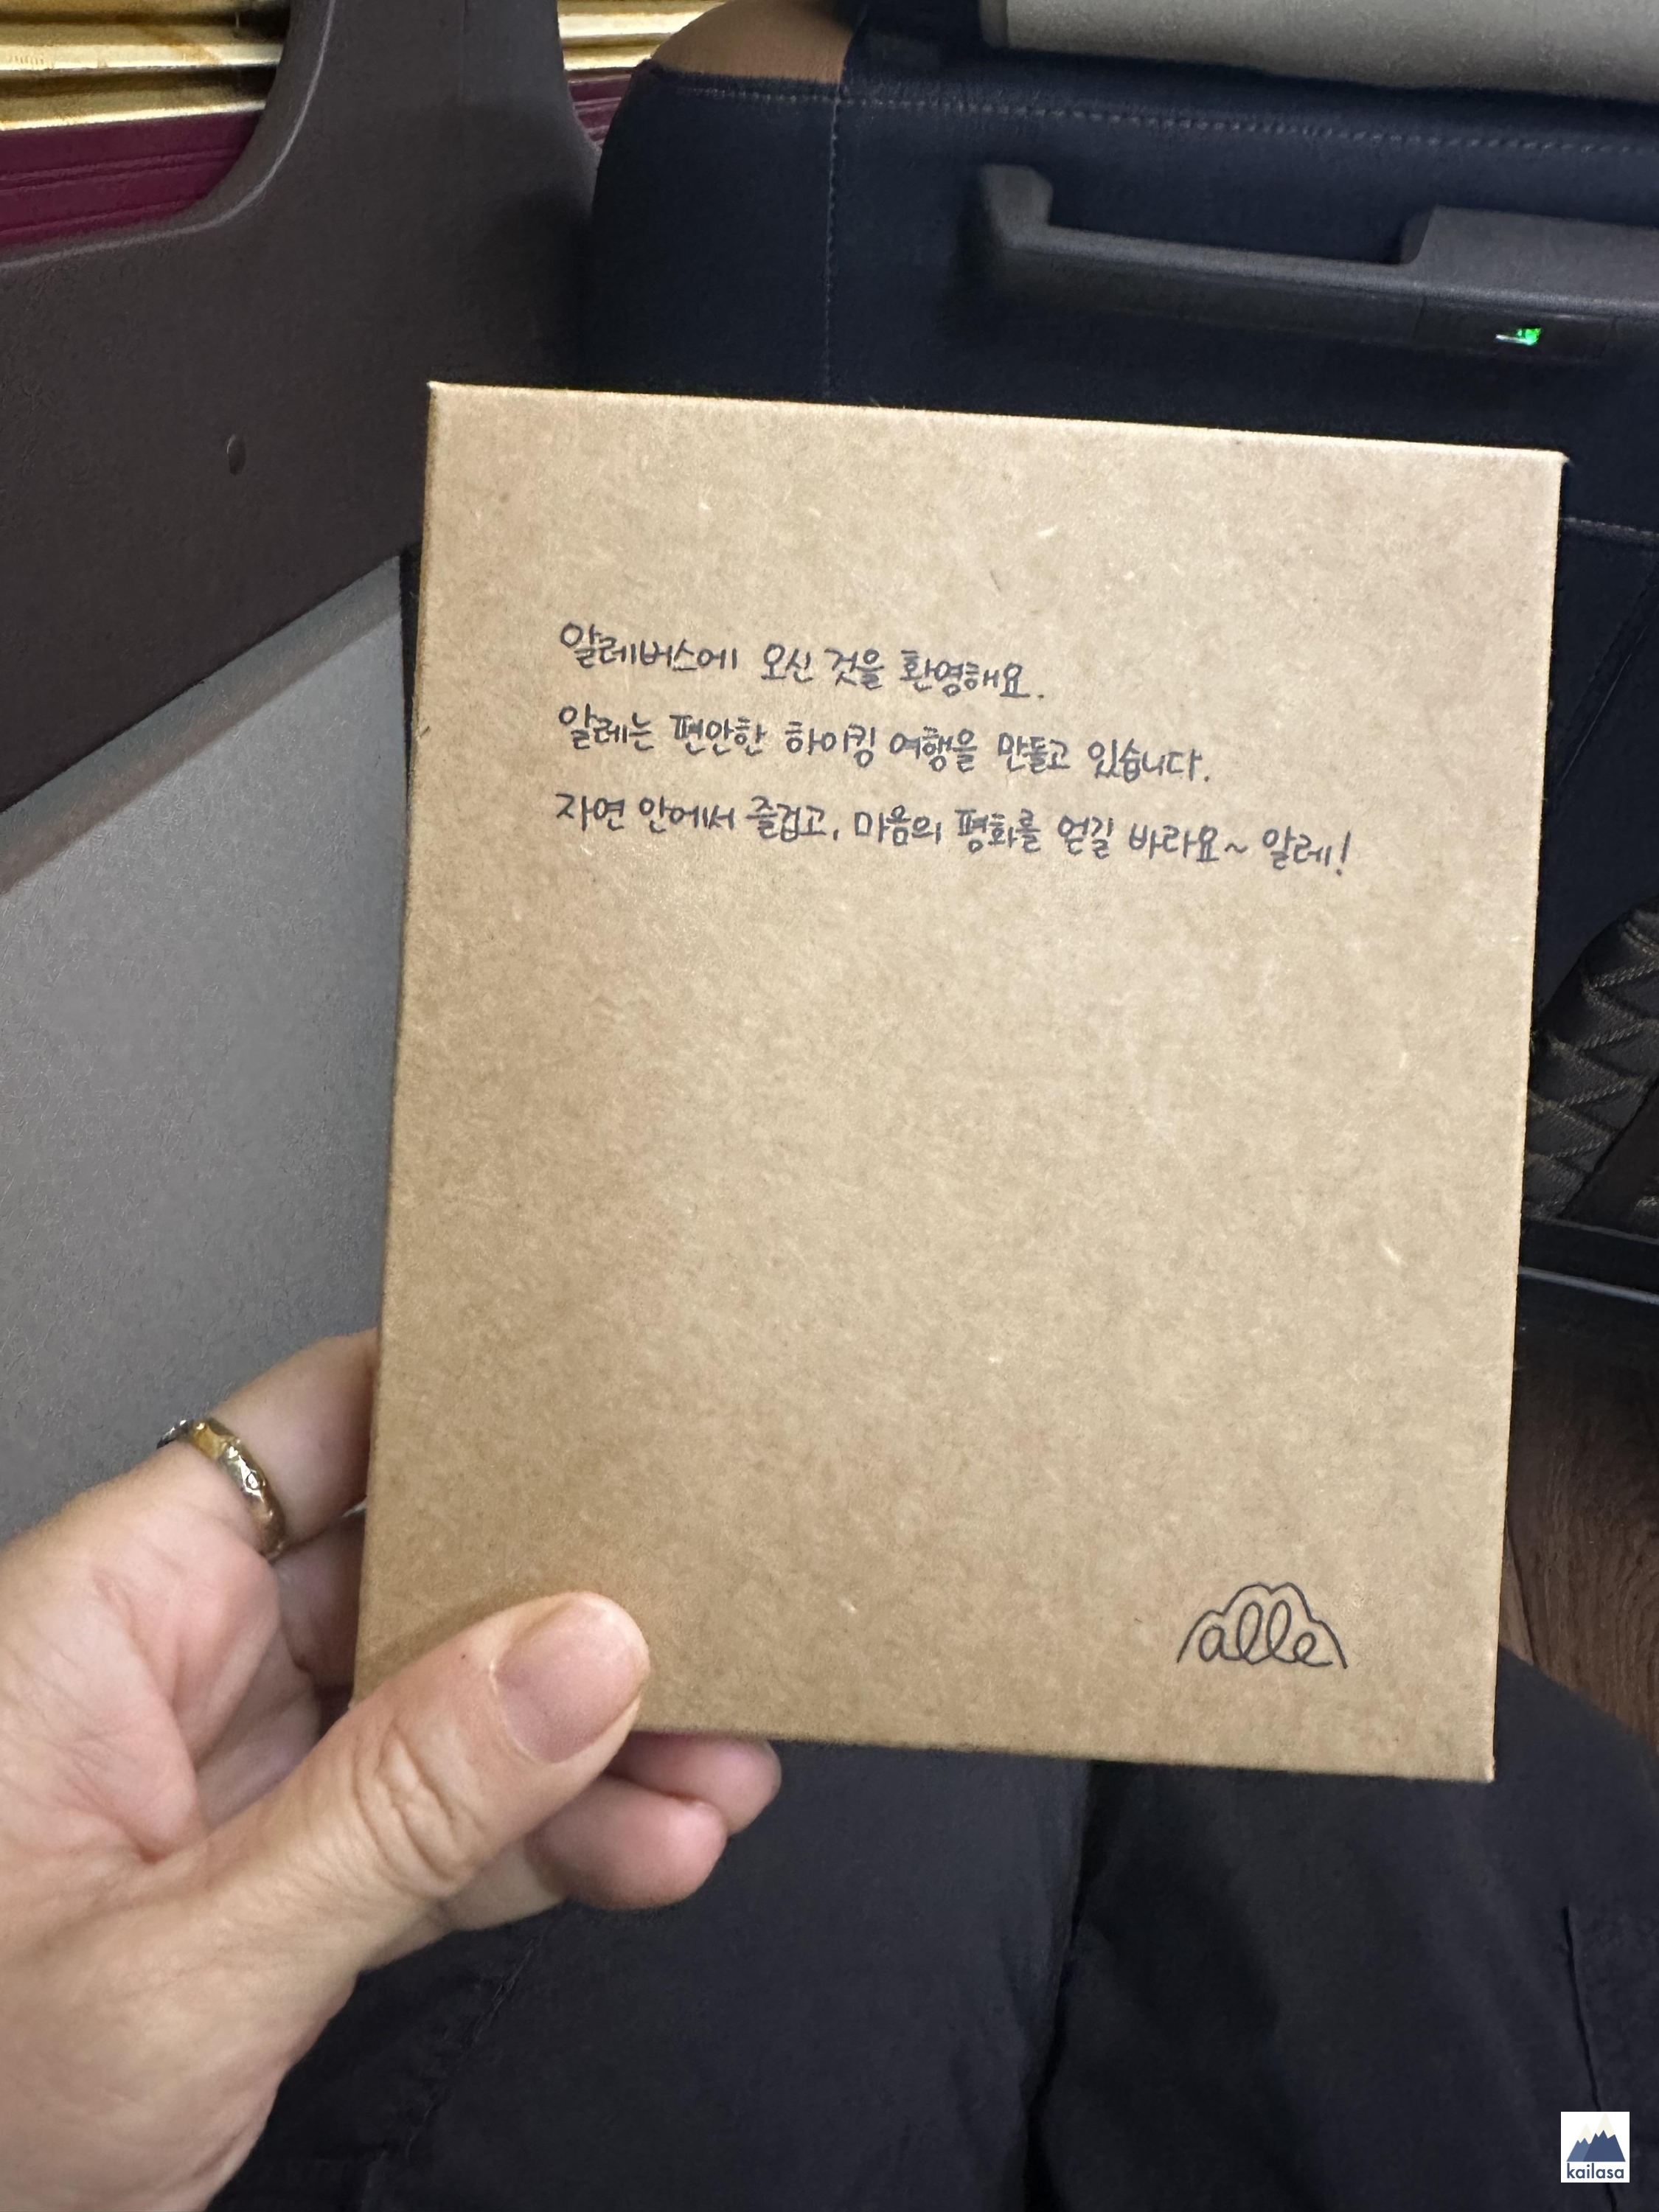 알레버스에 오신 것을 환영해요.
알레는 편안한 하이킹 여행을 만들고 있습니다.
자연 안에서 즐겁고, 마음의 평화를 얻길 바라요~ 알레!
alle
kailasa